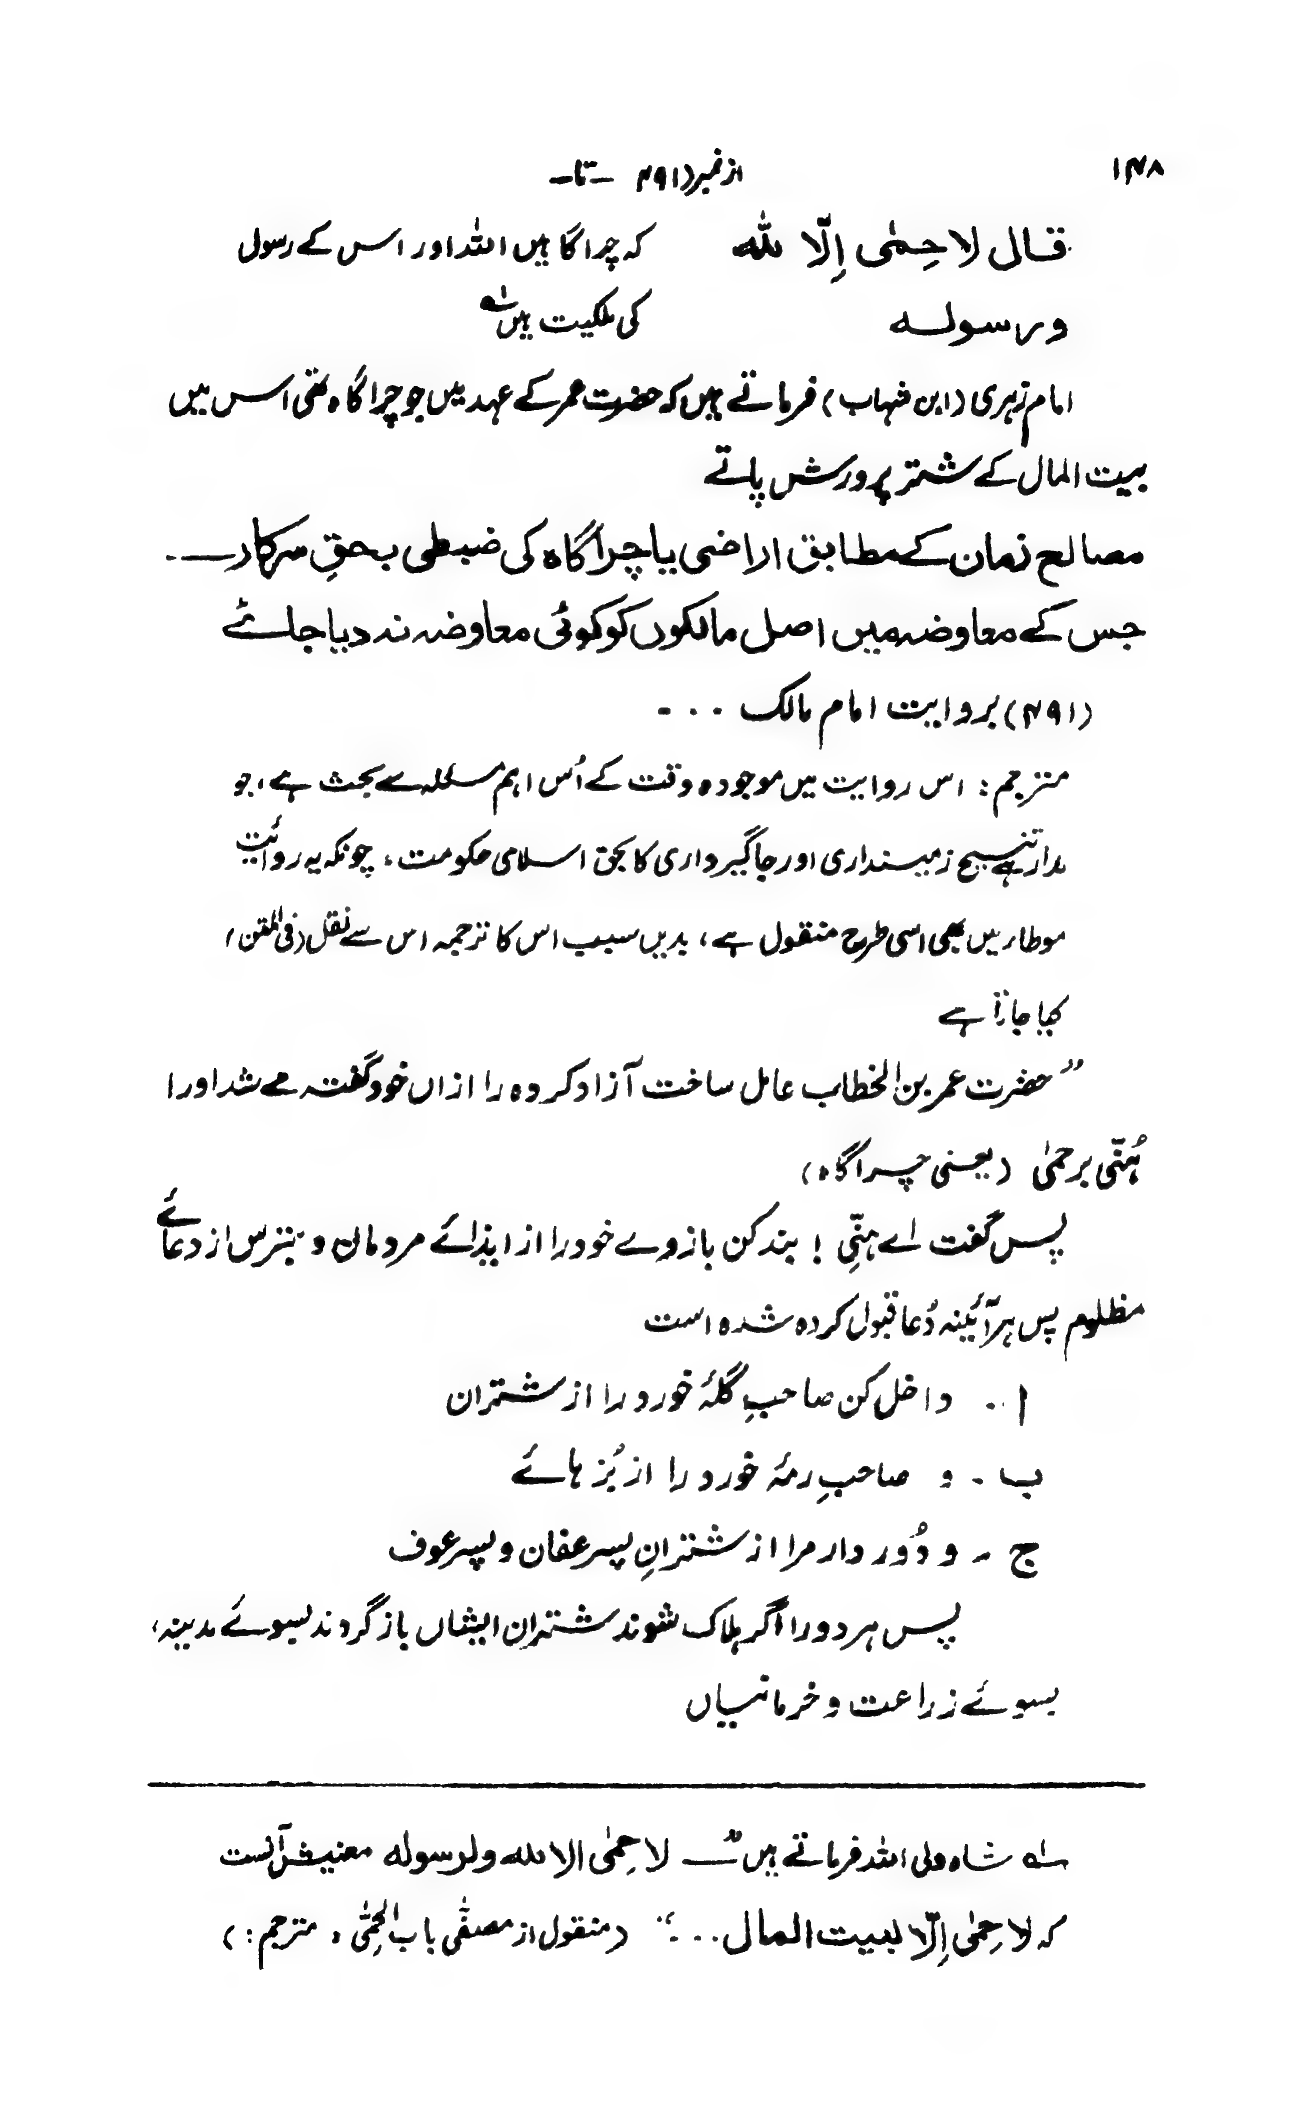 ۱۴۸
از نمبر (۴۹۱ — تا —
قال لا حِمٰی اِلّا لله کہ چراگاہیں اللہ اور اس کے رسول
ورسولہ کی ملکیت ہیں لہ
امام زہری (ابن شہاب) فرماتے ہیں کہ حضرت عمر کے عہد میں جو چراگاہ تھی اس میں
بیت المال کے شتر پرورش پاتے
مصالح زمان کے مطابق اراضی یا چراگاہ کی ضبطی بحقِ سرکار ۔۔
جس کے معاوضہ میں اصل مالکوں کو کوئی معاوضہ نہ دیا جائے
(۴۹۱) بروایت امام مالک ۔ ۔ ۔
مترجم: اس روایت میں موجودہ وقت کے اُس اہم مسئلہ سے بحث ہے، جو
مدار ہے تنسیخ زمینداری اور جاگیرداری کا بحق اسلامی حکومت، چونکہ یہ روائیت
موطا میں بھی اسی طرح منقول ہے، بدیں سبب اس کا ترجمہ اس سے نقل (فی المتن)
کیا جاتا ہے
”حضرت عمر بن الخطاب عامل ساخت آزاد کردہ را ازاں خود گفتہ مے شد اورا
ہُنّی برحمٰی (یعنی چراگاہ)
پس گفت اے ہنّی! بند کن بازوے خود را از ایذائے مردمان و بترس از دعائے
مظلوم پس ہر آئینہ دُعا قبول کردہ شدہ است
ا ۔۔ داخل کن صاحبِ گلۂ خورد را از شتران
ب ۔ و صاحبِ رمۂ خورد را از بُز ہائے
ج ۔ و دُور دار مرا از شترانِ پسر عفان و پسر عوف
پس ہر دو را اگر ہلاک شوند شتران ایشاں باز گردند بسوئے مدینہ،
بسوئے زراعت و خرمانیساں
لہ شاہ ولی اللہ فرماتے ہیں ”— لا حِمٰی الا لله ولرسولہ معنیش آنست
کہ لا حِمٰی اِلّا لبیت المال . . . “ (منقول از مصفّٰی باب الحِمٰی ، مترجم:)